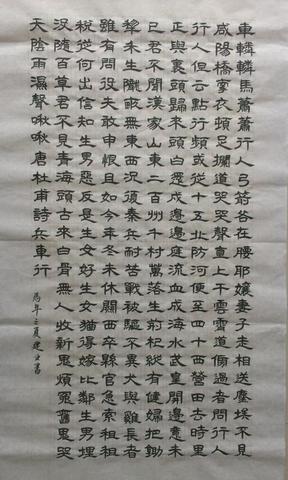 車轔轔馬蕭蕭行人弓箭各在腰耶孃妻子走相送塵埃不見
咸陽橋牽衣頓足攔道哭哭聲直上干雲霄道傍過者問行人
行人但云點行頻或從十五北防河便至四十西營田去時里
正與裹頭歸來頭白還戍邊邊庭流血成海水武皇開邊意未
已君不聞漢家山東二百州千村萬落生荊杞縱有健婦把鋤
犁禾生隴畝無東西況復秦兵耐苦戰被驅不異犬與雞長者
雖有問役夫敢申恨且如今年冬未休關西卒縣官急索租租
稅從何出信知生男惡反是生女好生女猶得嫁比鄰生男埋
沒隨百草君不見青海頭古來白骨無人收新鬼煩冤舊鬼哭
天陰雨濕聲啾啾唐杜甫詩兵車行
馬年之夏建書